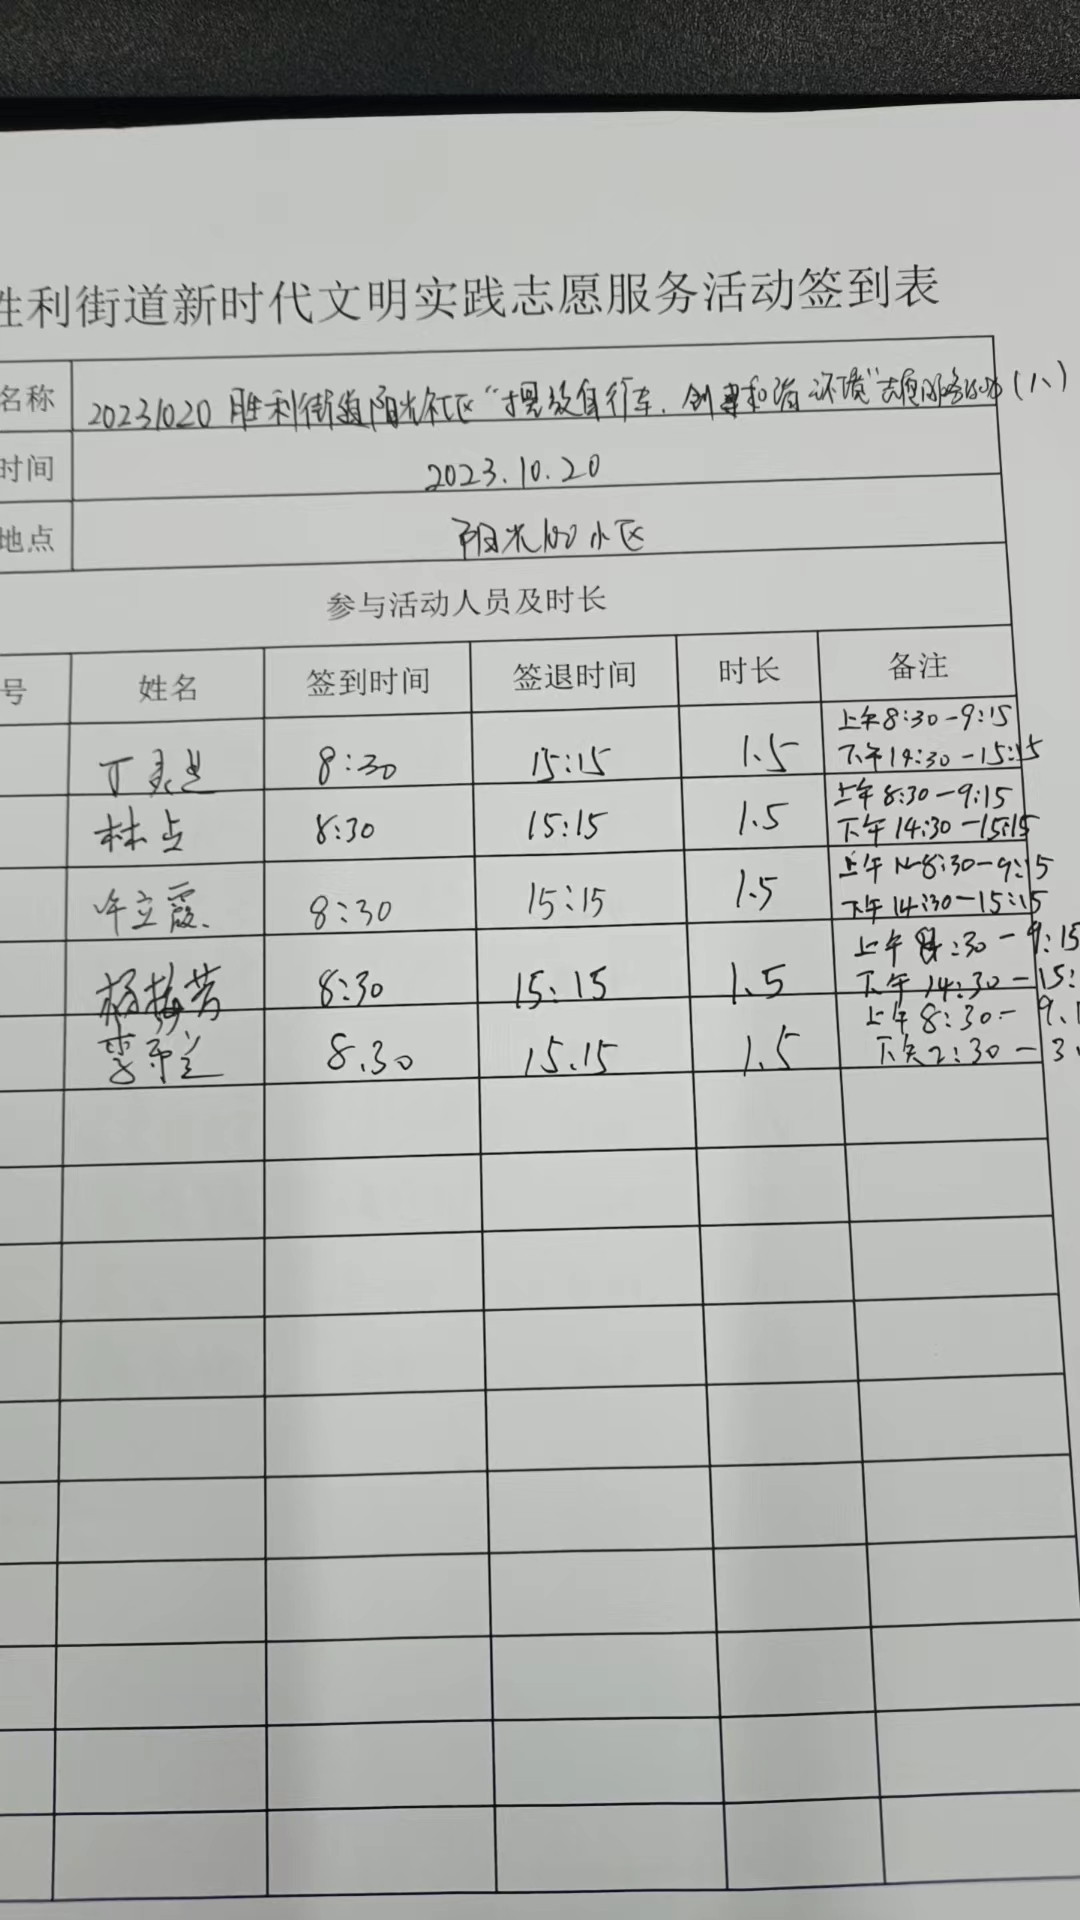 胜利街道新时代文明实践志愿服务活动签到表
名称 20231020 胜利街道阳光社区“摆放自行车、创建和谐环境”志愿服务活动(八)
时间 2023.10.20
地点 阳光100小区
参与活动人员及时长
号 姓名 签到时间 签退时间 时长 备注
丁 8:30 15:15 1.5 上午8:30-9:15
下午14:30-15:15
林占 8:30 15:15 1.5 上午8:30-9:15
下午14:30-15:15
许立霞 8:30 15:15 1.5 上午8:30-9:15
下午14:30-15:15
杨梅芳 8:30 15:15 1.5 上午8:30-9:15
下午14:30-15:
李 8.30 15.15 1.5 上午8:30-9.1
下午2:30-3.